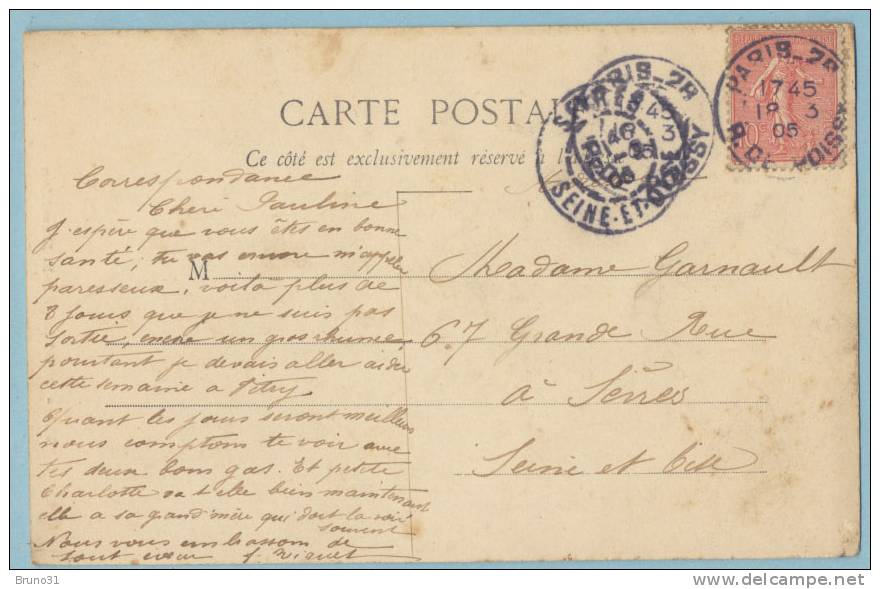 CARTE POSTALE
Ce côté est exclusivement réservé à l'adresse
PARIS_28
1745
18 3
05
R. DE POISSY
PARIS_28
SEINE-ET-OISE
Correspondance
Cheri Pauline
J'espère que vous êtes en bonne
santé, tu vas encore m'appeler
paresseux, voilà plus de
8 jours que je ne suis pas
sortie, encore un gros rhume,
pourtant je devais aller aider
cette semaine a Vitry
Quant les jours seront meilleurs
nous comptons te voir avec
tes deux bons gas. Et petite
Charlotte va t'elle bien maintenant
elle a sa grand'mère qui doit la voir
souvent
Nous vous embrassons de
tout cœur
M
Madame Garnault
67 Grande Rue
à Sèvres
Seine et Oise
Bruno31
http://www.delcampe.net